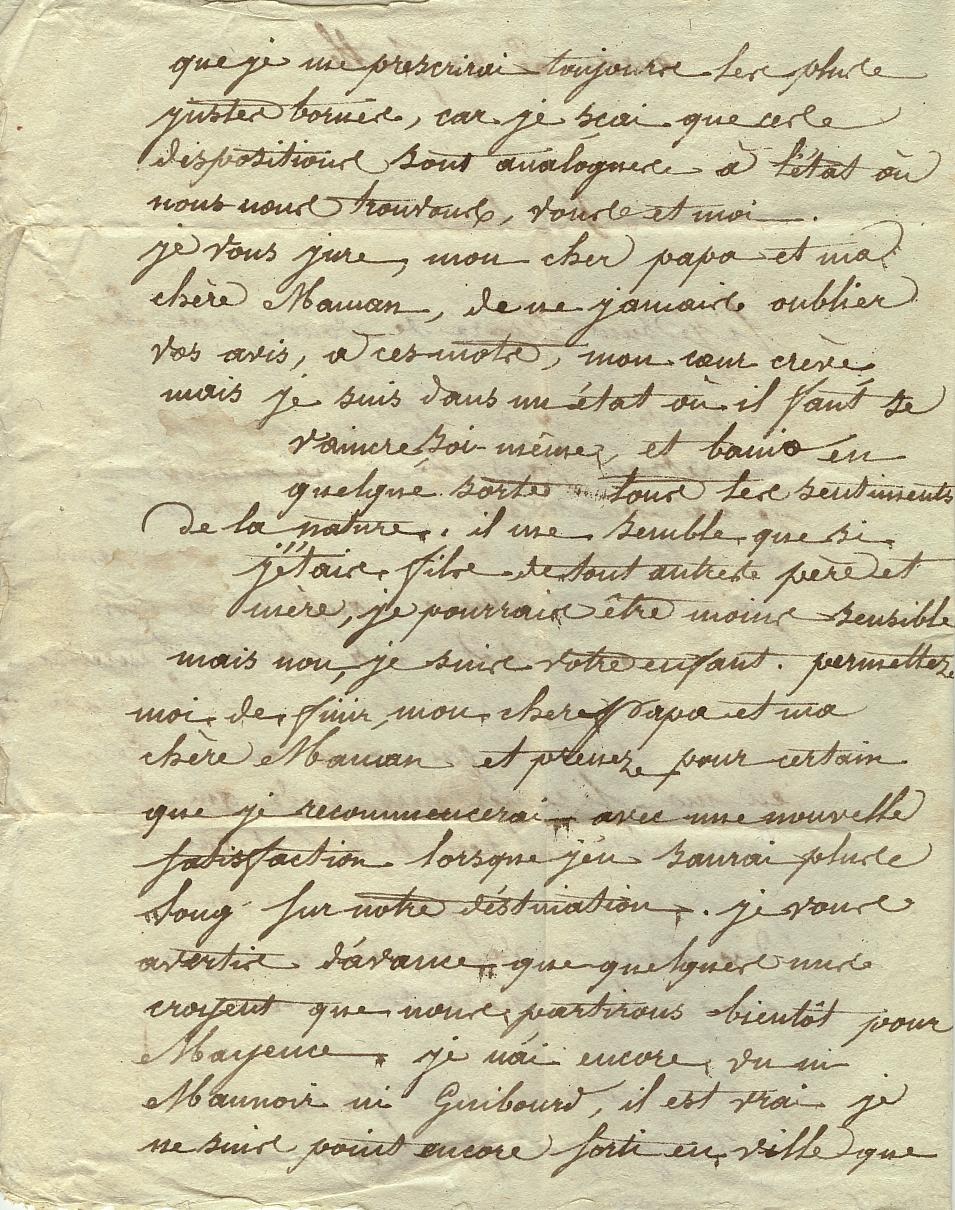 que je me prescrirai toujours les plus
justes bornes, car je scai que ces
dispositions sont analogues à l'état où
nous nous trouvons, vous et moi.
je vous jure, mon cher papa et ma
chère Maman, de ne jamais oublier
vos avis, à ces mots, mon cœur crève,
mais je suis dans un état où il faut se
vaincre soi-même, et banir en
quelque sorte tous les sentiments
de la nature. il me semble que si
j'étais fils de tout autres père et
mère, je pourrais être moins sensible
mais non, je suis votre enfant. permettez
moi de finir mon cher Papa et ma
chère Maman et prenez pour certain
que je recommencerai avec une nouvelle
satisfaction lorsque j'en saurai plus
long sur notre déstination. je vous
avertis d'avance que quelques uns
croyent que nous partirons bientôt pour
Mayence. je n'ai encore vu ni
Maunoir ni Guibourd, il est vrai je
ne suis point encore sorti en ville que